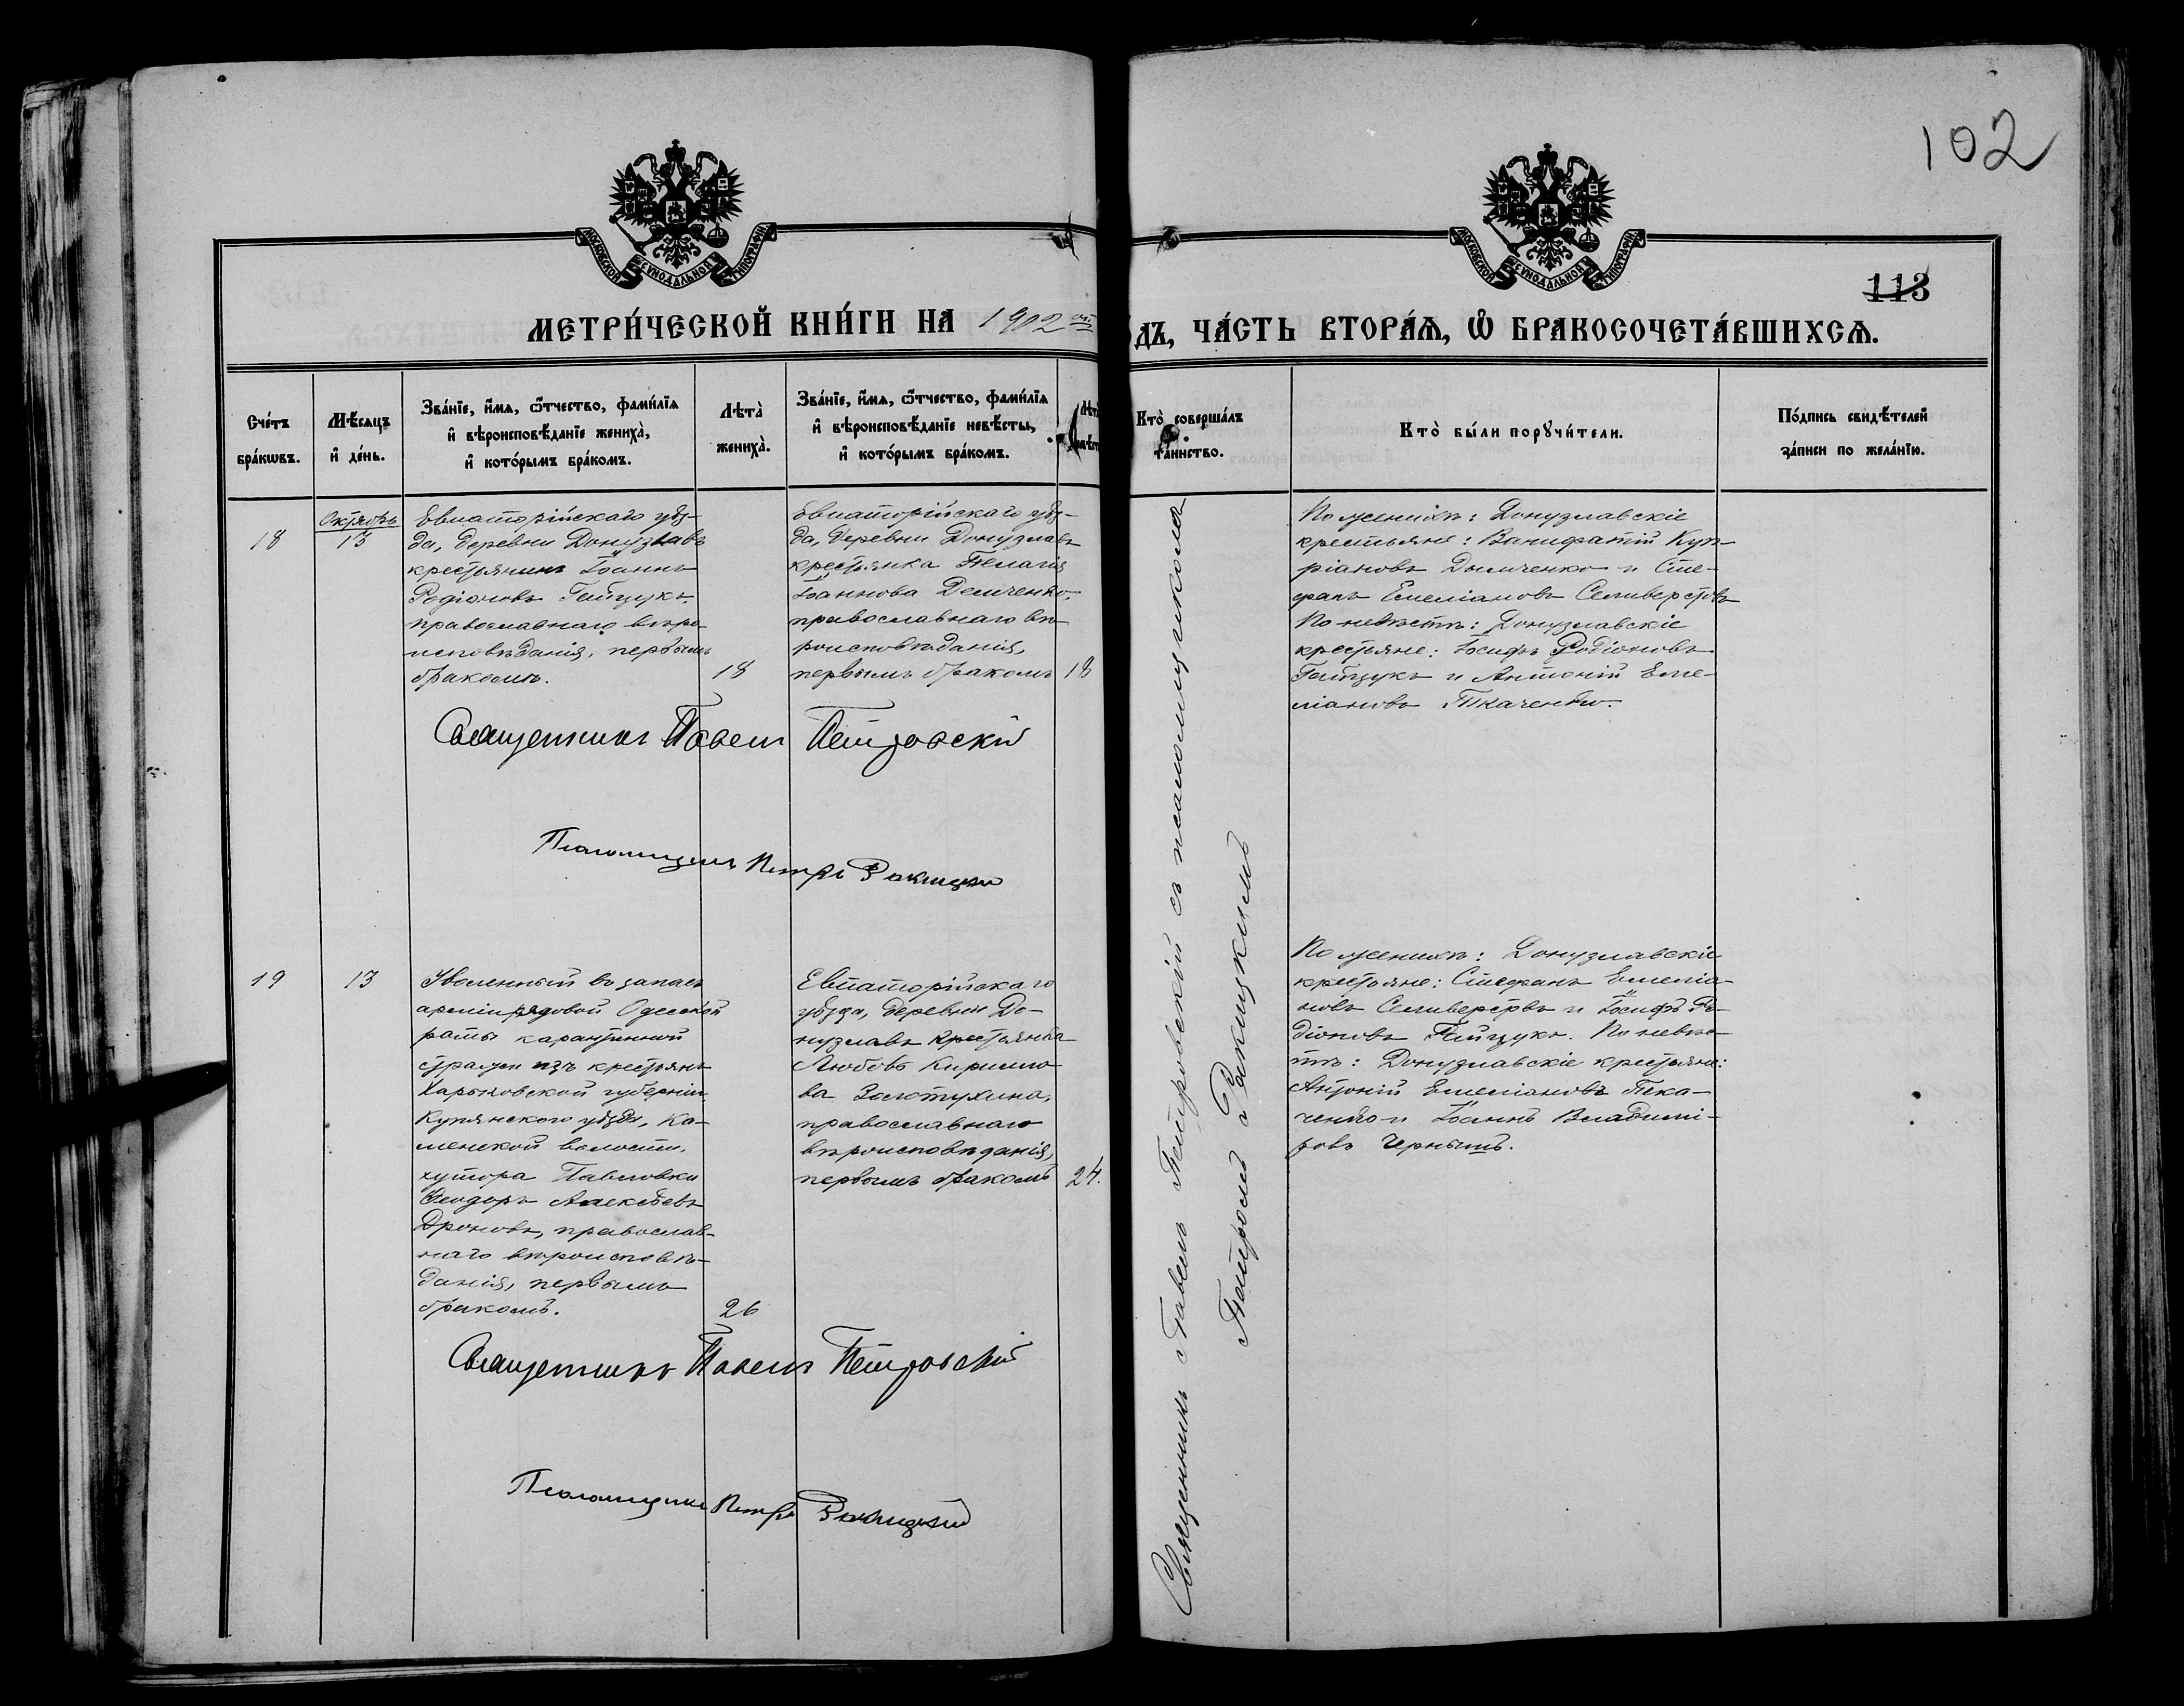 102
МОСКОВСКОЙ СѴНОДАЛЬНОЙ ТИПОГРАФІИ
МОСКОВСКОЙ СѴНОДАЛЬНОЙ ТИПОГРАФІИ
113
МЕТРИ́ЧЕСКОЙ КНИ́ГИ НА 1902 ый
ОДЪ, ЧА́СТЬ ВТОРА́Ѧ, Ѡ БРАКОСОЧЕТА́ВШИХСѦ.
Сче́тъ
бра́кѡвъ.
Мѣ́сяцъ
и҆ де́нь.
Зва́нїе, и҆́мя, ѻ҆́тчество, фами́лїя
и҆ вѣроисповѣ́данїе жениха̀,
и҆ кото́рымъ бра́комъ.
Лѣта̀
жениха̀.
Зва́нїе, и҆́мя, ѻ҆́тчество, фами́лїя
и҆ вѣроисповѣ́данїе невѣ́сты,
и҆ кото́рымъ бра́комъ.
Кто̀ соверша́лъ
та́инство.
Кто̀ бы́ли порꙋчи́тели.
По́дпись свидѣ́телей
за́писи по жела́нїю.
18
Октябрь
13
Евпаторійскаго уѣз-
да, деревни Донузлавъ
крестьянинъ Іоаннъ
Родіоновъ Гайцукъ,
православнаго вѣро
исповѣданія, первымъ
бракомъ.
18
Евпаторійскаго уѣз-
да, деревни Донузлавъ
крестьянка Пелагія
Іоаннова Демченко,
православнаго вѣ-
роисповѣданія,
первымъ бракомъ
18
По женихѣ: Донузлавскіе
крестьяне: Ванифатій Куп-
ріановъ Дымченко и Сте-
фанъ Емеліановъ Селиверстовъ
По невѣстѣ: Донузлавскіе
крестьяне: Іосифъ Родіоновъ
Гайцукъ и Антоній Еме-
ліановъ Ткаченко.
Священникъ Павелъ Петровскій
Псаломщикъ Петръ Ракицкій
19
13
Уволенный въ запасъ
арміи рядовой Одесской
роты карантинной
стражи изъ крестьянъ
Харьковской губерніи,
Купянского уѣзда, Ка-
менской волости,
хутора Павловки
Ѳеодоръ Алексѣевъ
Дроновъ, православ-
наго вѣроисповѣ-
данія, первымъ
бракомъ.
26
Евпаторійскаго
уѣзда, деревни До-
нузлавъ крестьянка
Любовь Кирилло-
ва Золотухина,
православнаго
вѣроисповѣданія,
первымъ бракомъ
24.
По женихѣ: Донузлавскіе
крестьяне: Стефанъ Емеліа-
новъ Селиверстовъ и Іосифъ Ро-
діоновъ Гайцукъ. По невѣс-
тѣ: Донузлавскіе крестьяне:
Антоній Емеліановъ Тка-
ченко и Іоаннъ Владимі-
ровъ Чернышъ.
Священникъ Павелъ Петровскій
Псаломщикъ Петръ Ракицкій
Священникъ Павелъ Петровскій съ псаломщикомъ
Петромъ Ракицкимъ